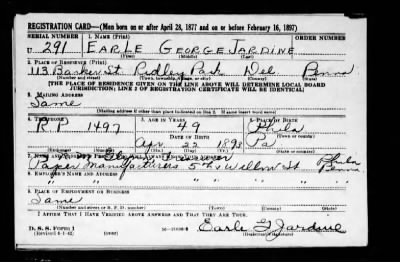 REGISTRATION CARD—(Men born on or after April 28, 1877 and on or before February 16, 1897)
SERIAL NUMBER 1. NAME (Print) ORDER NUMBER
U 291 EARLE GEORGE JARDINE
(First) (Middle) (Last)
2. PLACE OF RESIDENCE (Print)
113 Barker St. Ridley Park Del Penna
(Number and street) (Town, township, village, or city) (County) (State)
[THE PLACE OF RESIDENCE GIVEN ON THE LINE ABOVE WILL DETERMINE LOCAL BOARD
JURISDICTION; LINE 2 OF REGISTRATION CERTIFICATE WILL BE IDENTICAL]
3. MAILING ADDRESS
Same
[Mailing address if other than place indicated on line 2. If same insert word same]
4. TELEPHONE 5. AGE IN YEARS 6. PLACE OF BIRTH
R P 1497 49 Phila
DATE OF BIRTH (Town or county)
Apr 22 1893 Pa
(Mo.) (Day) (Yr.) (State or country)
7. NAME AND ADDRESS
Paper Manufacturers 5th & Willow St Phila Penna
8. EMPLOYER'S NAME AND ADDRESS
" " " "
9. PLACE OF EMPLOYMENT OR BUSINESS
Same
(Number and street or R. F. D. number) (Town) (County) (State)
I AFFIRM THAT I HAVE VERIFIED ABOVE ANSWERS AND THAT THEY ARE TRUE.
D. S. S. Form 1
(Revised 4-1-42) (over) Earle G Jardine
(Registrant's signature)